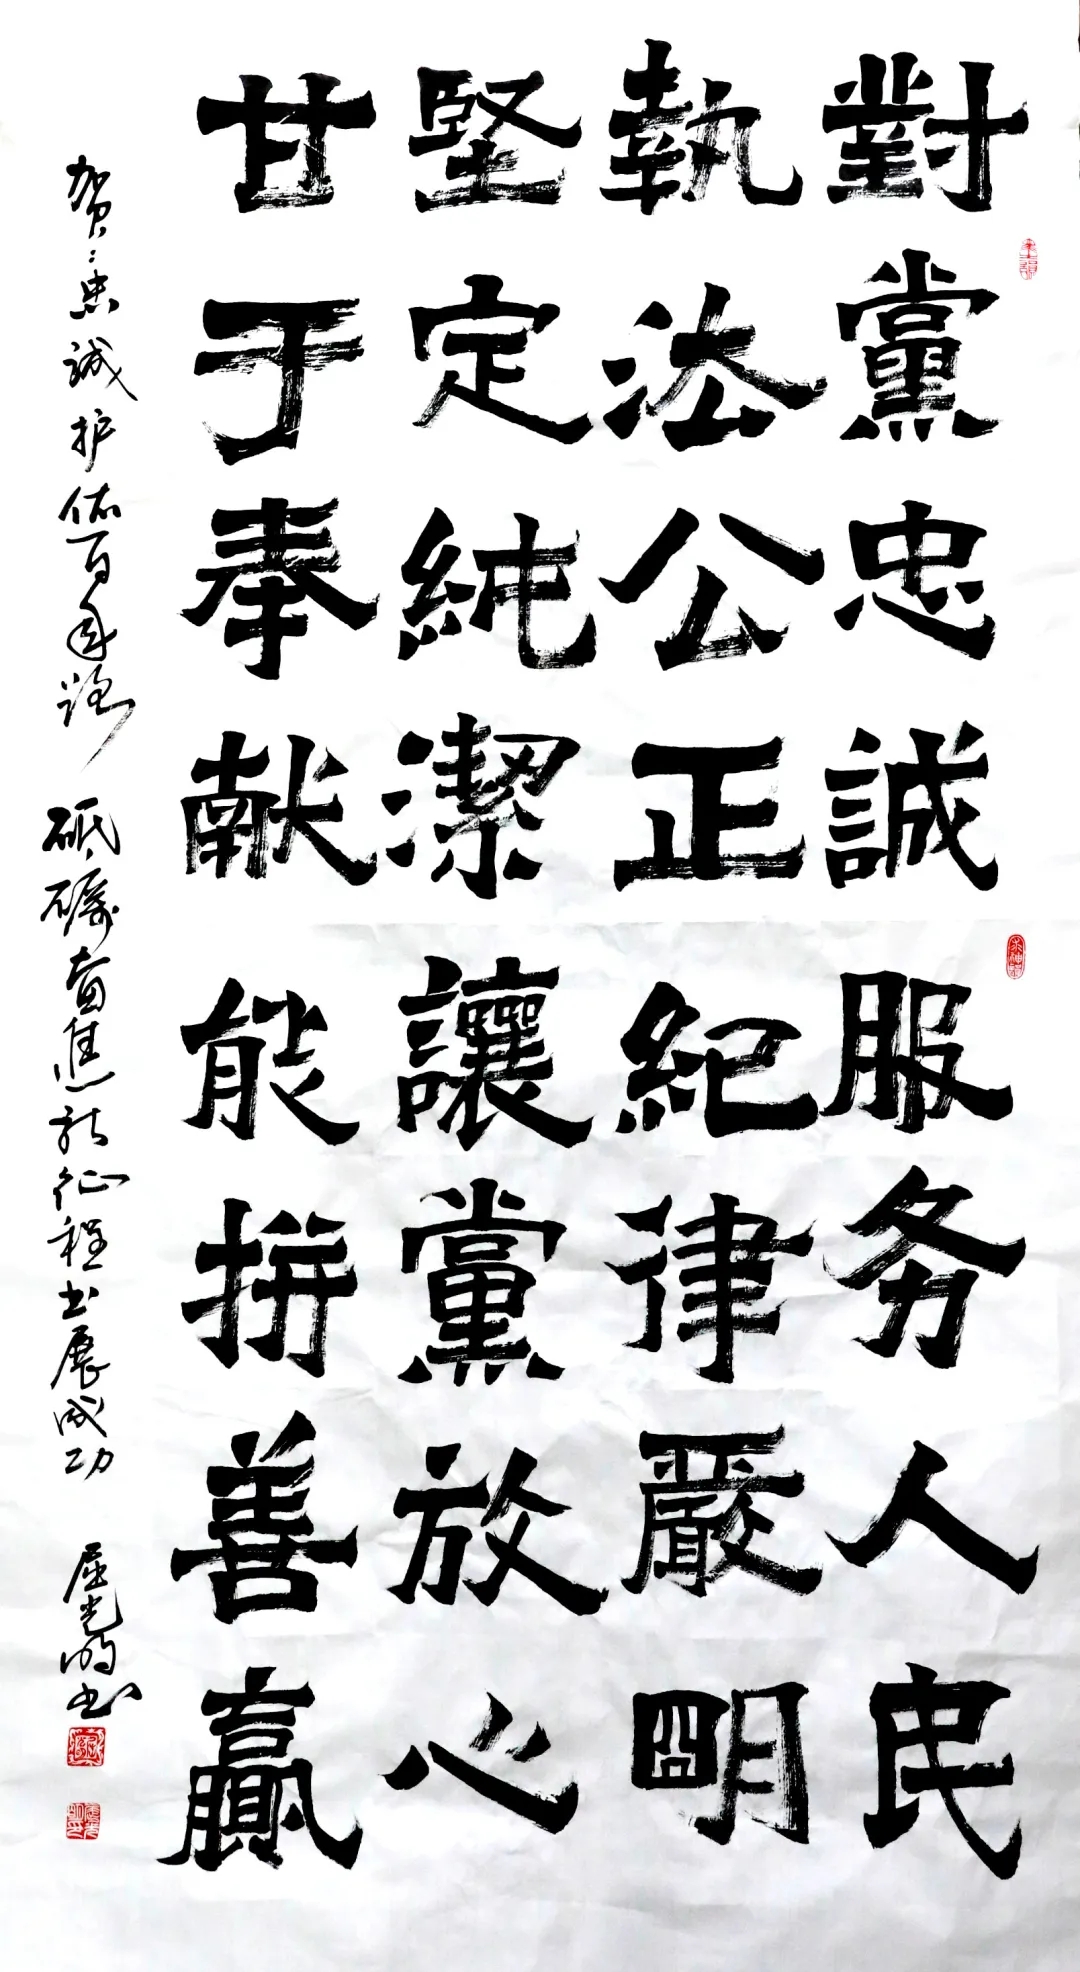 對黨忠誠服务人民
執法公正紀律嚴明
堅定純潔讓黨放心
甘于奉献能拼善贏
贺:忠誠护佑百年路 砥砺奋進新征程书展成功
屈光明书